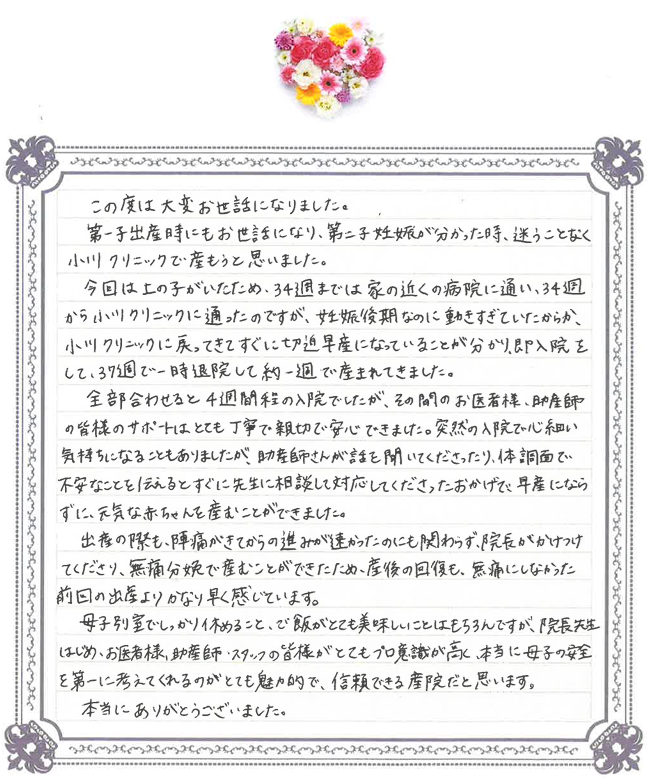 この度は大変お世話になりました。
第一子出産時にもお世話になり、第二子妊娠が分かった時、迷うことなく
小川クリニックで産もうと思いました。
今回は上の子がいたため、34週までは家の近くの病院に通い、34週
から小川クリニックに通ったのですが、妊娠後期なのに動きすぎていたからか、
小川クリニックに戻ってきてすぐに切迫早産になっていることが分かり、即入院を
して、37週で一時退院して約一週で産まれてきました。
全部合わせると4週間程の入院でしたが、その間のお医者様、助産師
の皆様のサポートはとても丁寧で親切で安心できました。突然の入院で心細い
気持ちになることもありましたが、助産師さんが話を聞いてくださったり、体調面で
不安なことを伝えるとすぐに先生に相談して対応してくださったおかげで、早産になら
ずに、元気な赤ちゃんを産むことができました。
出産の際も、陣痛がきてからの進みが速かったのにも関わらず、院長がかけつけ
てくださり、無痛分娩で産むことができたため、産後の回復も、無痛にしなかった
前回の出産よりかなり早く感じています。
母子別室でしっかり休めること、ご飯がとても美味しいことはもちろんですが、院長先生
はじめ、お医者様、助産師・スタッフの皆様がとてもプロ意識が高く、本当に母子の安全
を第一に考えてくれるのがとても魅力的で、信頼できる産院だと思います。
本当にありがとうございました。